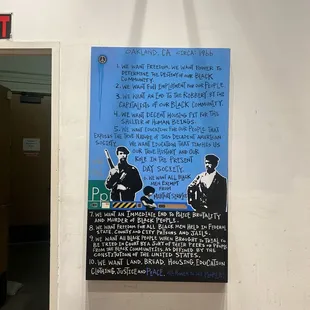 IT
OAKLAND, CA CIRCA 1966
1. WE WANT FREEDOM. WE WANT POWER TO
DETERMINE THE DESTINY OF OUR BLACK
COMMUNITY.
2. WE WANT FULL EMPLOYMENT FOR OUR PEOPLE.
3. WE WANT AN END TO THE ROBBERY BY THE
CAPITALISTS OF OUR BLACK COMMUNITY.
4. WE WANT DECENT HOUSING FIT FOR THE
SHELTER OF HUMAN BEINGS.
5. WE WANT EDUCATION FOR OUR PEOPLE THAT
EXPOSES THE TRUE NATURE OF THIS DECADENT AMERICAN
SOCIETY. WE WANT EDUCATION THAT TEACHES US
OUR TRUE HISTORY AND OUR
ROLE IN THE PRESENT
DAY SOCIETY.
6. WE WANT ALL BLACK
MEN EXEMPT
FROM
MILITARY SERVICE
7. WE WANT AN IMMEDIATE END TO POLICE BRUTALITY
AND MURDER OF BLACK PEOPLE.
8. WE WANT FREEDOM FOR ALL BLACK MEN HELD IN FEDERAL
STATE, COUNTY AND CITY PRISONS AND JAILS.
9. WE WANT ALL BLACK PEOPLE WHEN BROUGHT TO TRIAL TO
BE TRIED IN COURT BY A JURY OF THEIR PEERS OR PEOPLE
FROM THE BLACK COMMUNITIES, AS DEFINED BY THE
CONSTITUTION OF THE UNITED STATES.
10. WE WANT LAND, BREAD, HOUSING, EDUCATION
CLOTHING, JUSTICE AND PEACE.